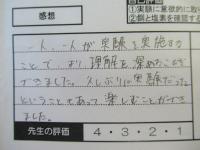 感想
①実験に意欲的に取り
②銅と塩素を確認する
一人、一人が実験を実施する
ことで、より理解を深めることが
できました。久しぶりに実験だった
ということもあって楽しむことができ
ました。
先生の評価 4・3・2・1